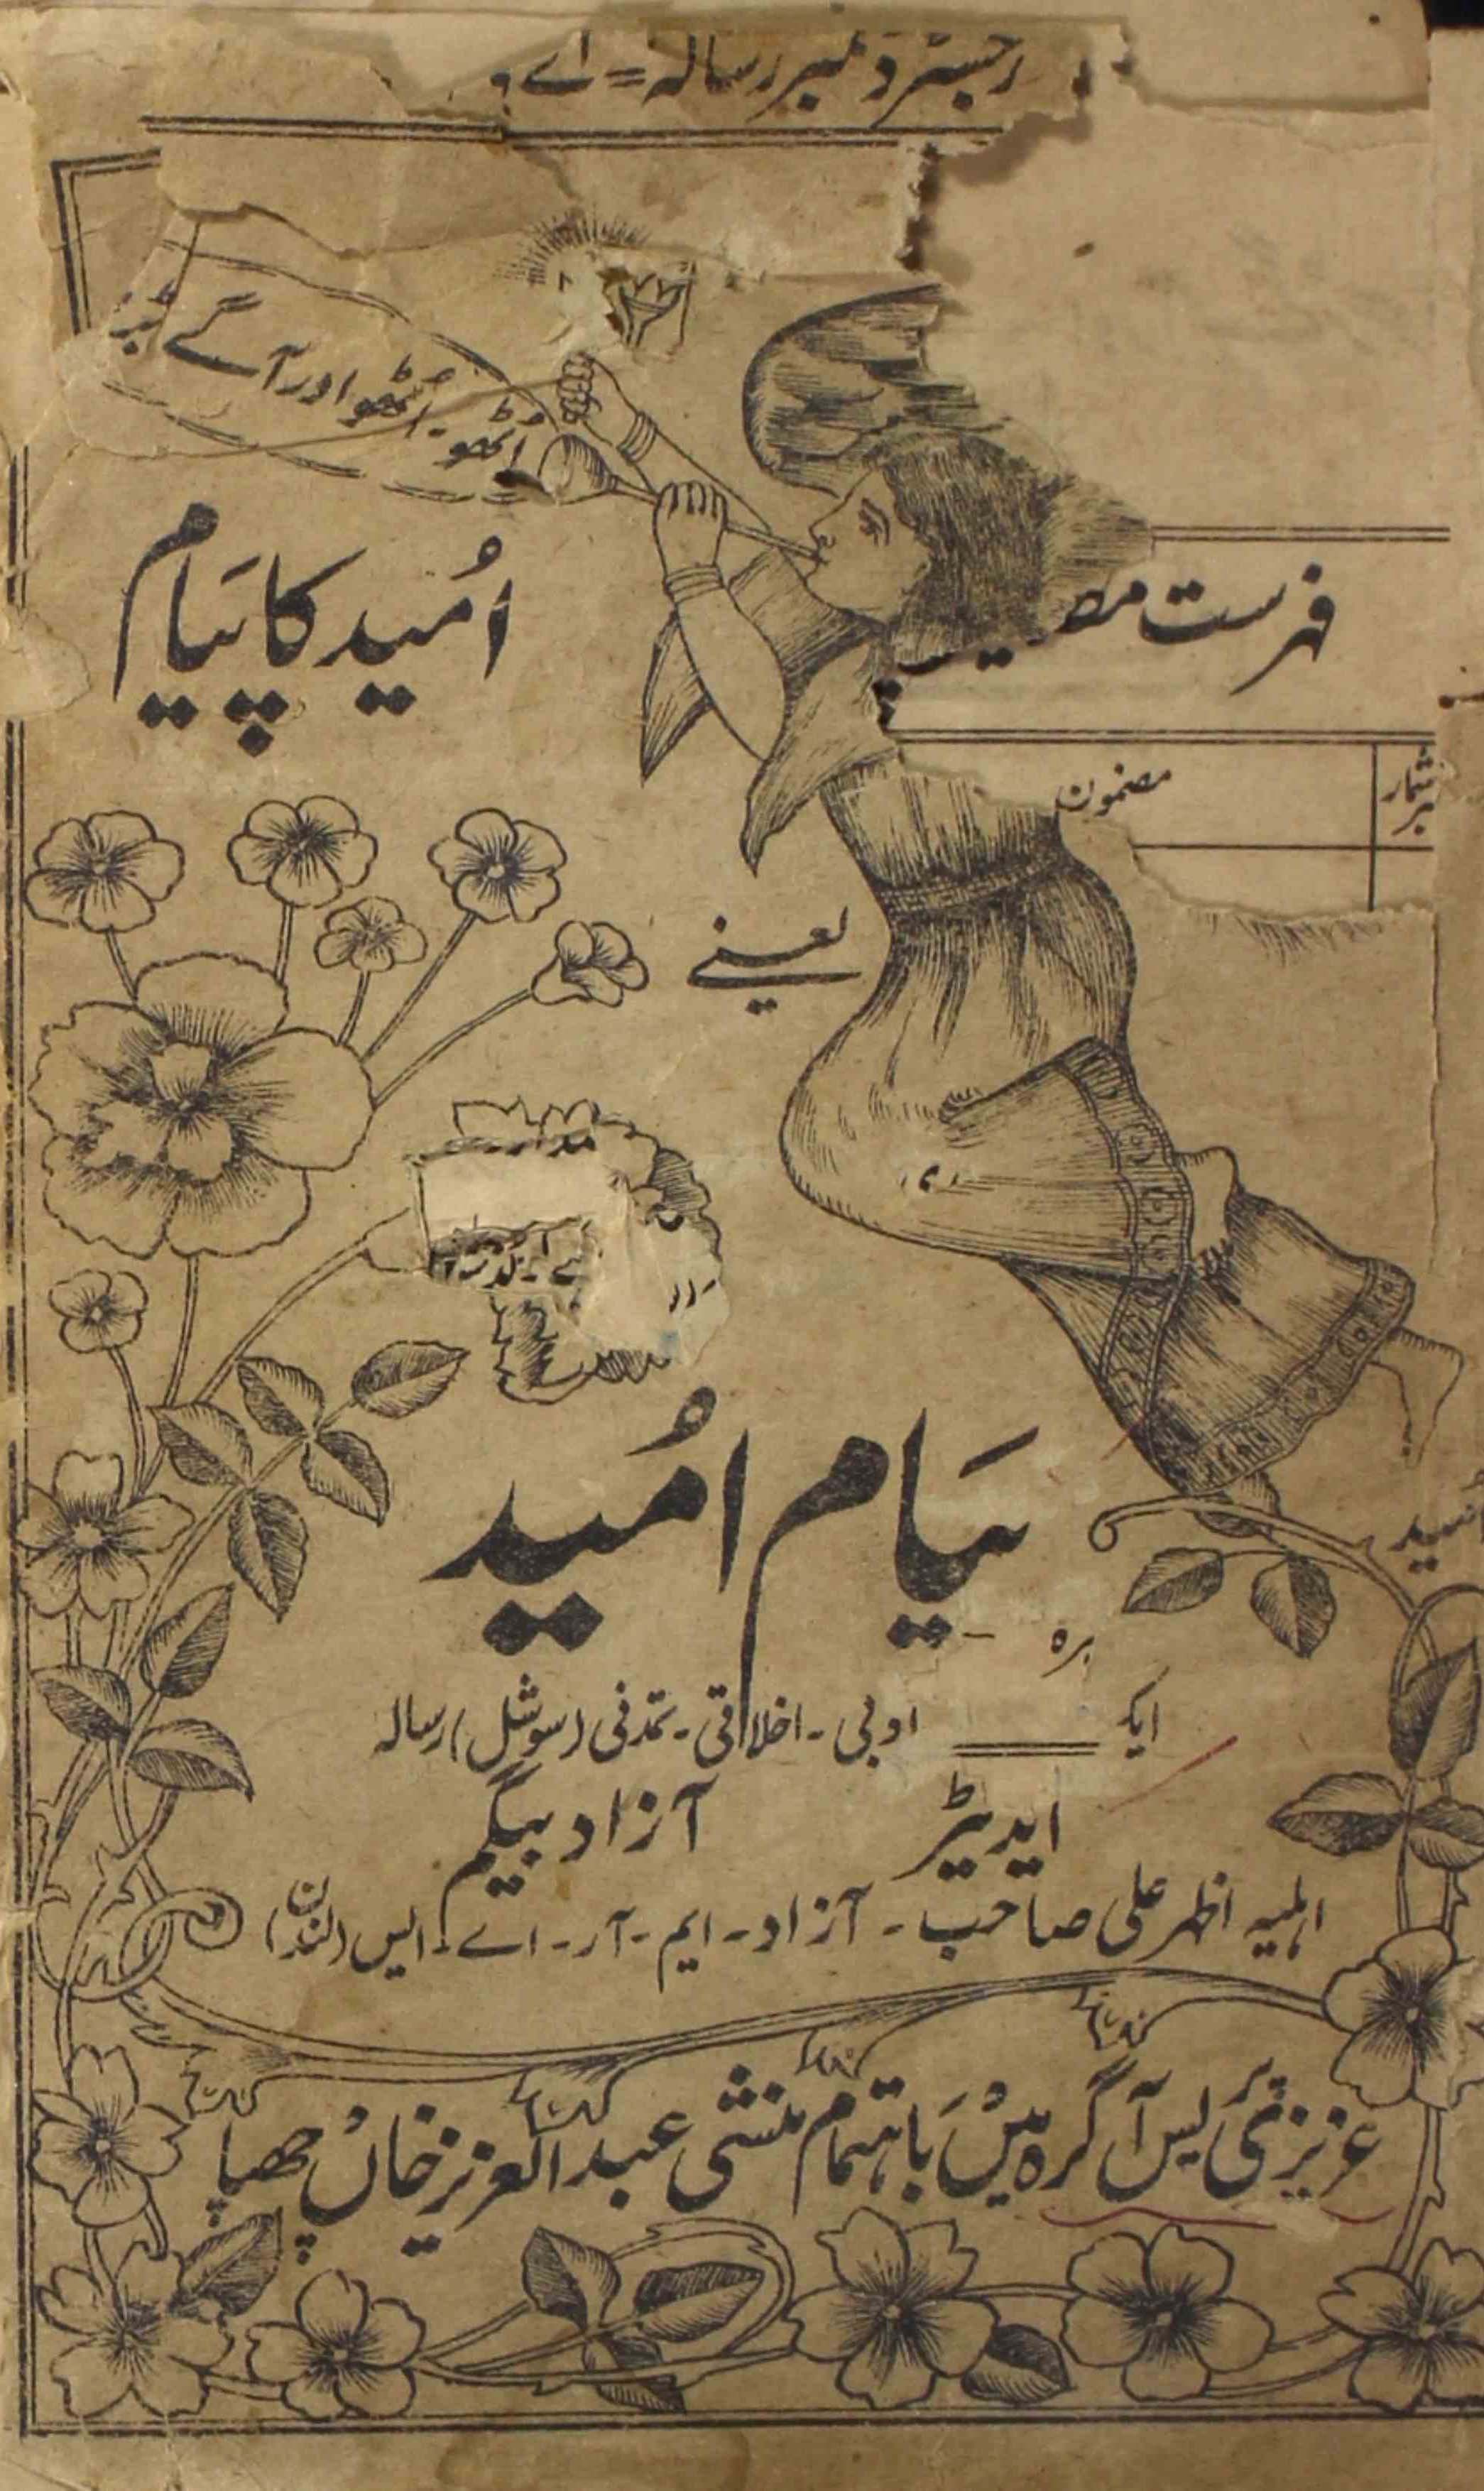 رجسٹرڈ نمبر رسالہ = اے
اُٹھو۔ اُٹھو اور آگے بڑ
اُمید کا پیام
فہرست
شمار مضمون
یعنے
پیام اُمید
ایک ادبی ۔ اخلاقی ۔ تمدنی (سوشل) رسالہ
ایڈیٹر آزاد بیگم
اہلیہ اظہر علی صاحب ۔ آزاد ۔ ایم ۔ آر ۔ اے ۔ ایس (لندن)
عزیزی پریس آگرہ میں باہتمام منشی عبدالعزیز خاں چھپا